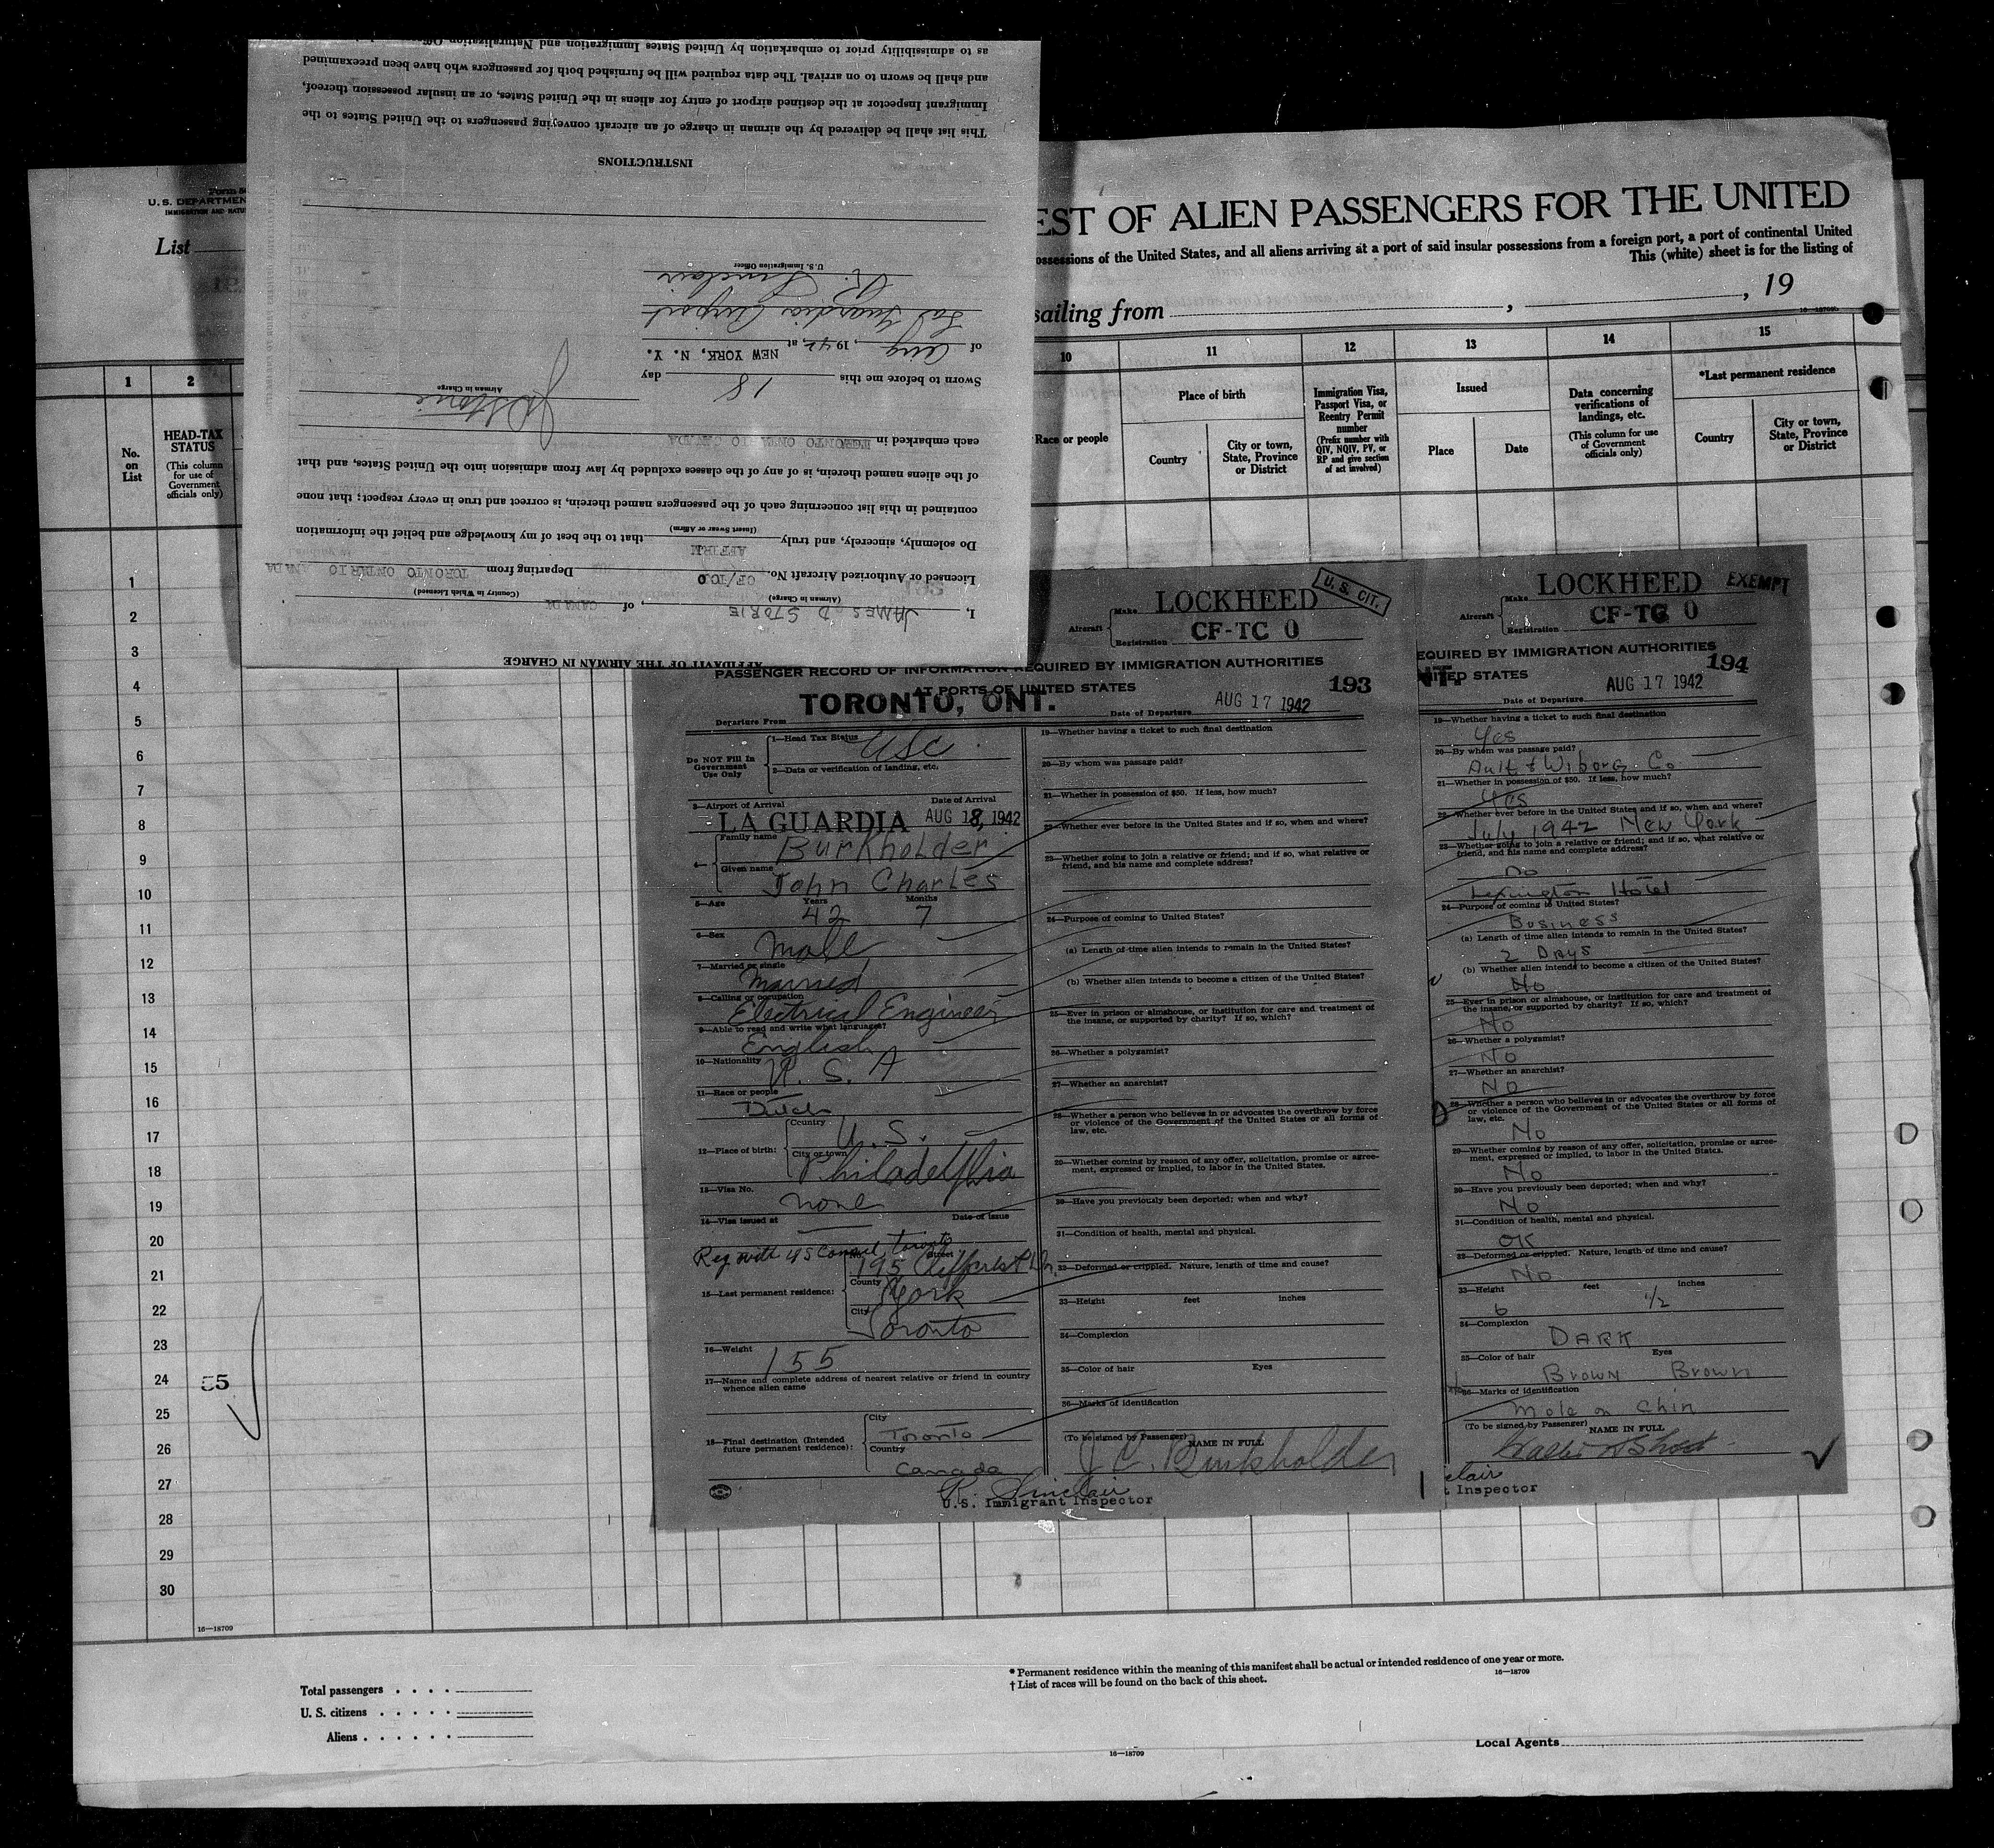 as to admissibility prior to embarkation by United States Immigration and Naturalization
and shall be sworn to on arrival. The data required will be furnished both for passengers who have been preexamined
Immigrant Inspector at the destined airport of entry for aliens in the United States, or an insular possession thereof,
This list shall be delivered by the airman in charge of an aircraft conveying passengers to the United States to the
INSTRUCTIONS
U. S. Immigration Officer
R. Sinclair
La Guardia Airport
of Aug, 1942, at NEW YORK, N. Y.
Sworn to before me this 18 day
Airman in Charge
JD Storie
each embarked in TORONTO ONTARIO CANADA
of the aliens named therein, is of any of the classes excluded by law from admission into the United States, and that
contained in this list concerning each of the passengers named therein, is correct and true in every respect; that none
(Insert Swear or Affirm)
Do solemnly, sincerely, and truly AFFIRM that to the best of my knowledge and belief the information
Licensed or Authorized Aircraft No. CF/TCO Departing from TORONTO ONTARIO CANADA
(Airman in Charge) (Country in Which Licensed)
I, JAMES D STORIE, of CANADA
AFFIDAVIT OF THE AIRMAN IN CHARGE
U. S. DEPARTMEN
IMMIGRATION AND NATU
List
EST OF ALIEN PASSENGERS FOR THE UNITED
ossessions of the United States, and all aliens arriving at a port of said insular possessions from a foreign port, a port of continental United
This (white) sheet is for the listing of
sailing from , , 19
1 2 10 11 12 13 14 15
No. on List
HEAD-TAX STATUS
(This column for use of Government officials only)
Race or people
Place of birth
Country
City or town, State, Province or District
Immigration Visa, Passport Visa, or Reentry Permit number
(Prefix number with QIV, NQIV, PV, or RP and give section of act involved)
Issued
Place
Date
Data concerning verifications of landings, etc.
(This column for use of Government officials only)
*Last permanent residence
Country
City or town, State, Province or District
1
2
3
4
5
6
7
8
9
10
11
12
13
14
15
16
17
18
19
20
21
22
23
24 55
25
26
27
28
29
30
16—18709
Aircraft Make LOCKHEED
U. S. CIT.
Registration CF-TC 0
PASSENGER RECORD OF INFORMATION REQUIRED BY IMMIGRATION AUTHORITIES
AT PORTS OF UNITED STATES
193
Departure From TORONTO, ONT.
Date of Departure AUG 17 1942
Do NOT Fill In Government Use Only
1—Head Tax Status USC
2—Data or verification of landing, etc.
3—Airport of Arrival LA GUARDIA
Date of Arrival AUG 18, 1942
4— Family name Burkholder
Given name John Charles
5—Age Years 42 Months 7
6—Sex Male
7—Married or single Married
8—Calling or occupation Electrical Engineer
9—Able to read and write what languages? English
10—Nationality U. S. A
11—Race or people Dutch
12—Place of birth: Country U. S.
City or town Philadelphia
13—Visa No. none
14—Visa issued at
Date of issue
Reg with US Consul, Toronto
15—Last permanent residence: Street 195
County York
City Toronto
16—Weight 155
17—Name and complete address of nearest relative or friend in country whence alien came
18—Final destination (Intended future permanent residence): City Toronto
Country Canada
19—Whether having a ticket to such final destination
20—By whom was passage paid?
21—Whether in possession of $50. If less, how much?
22—Whether ever before in the United States and if so, when and where?
23—Whether going to join a relative or friend; and if so, what relative or friend, and his name and complete address?
24—Purpose of coming to United States?
(a) Length of time alien intends to remain in the United States?
(b) Whether alien intends to become a citizen of the United States?
25—Ever in prison or almshouse, or institution for care and treatment of the insane, or supported by charity? If so, which?
26—Whether a polygamist?
27—Whether an anarchist?
28—Whether a person who believes in or advocates the overthrow by force or violence of the Government of the United States or all forms of law, etc.
29—Whether coming by reason of any offer, solicitation, promise or agreement, expressed or implied, to labor in the United States.
30—Have you previously been deported; when and why?
31—Condition of health, mental and physical.
32—Deformed or crippled. Nature, length of time and cause?
33—Height feet inches
34—Complexion
35—Color of hair Eyes
36—Marks of identification
(To be signed by Passenger) NAME IN FULL
J. C. Burkholder
R. Sinclair
U.S. Immigrant Inspector
Aircraft Make LOCKHEED
EXEMPT
Registration CF-TC 0
EQUIRED BY IMMIGRATION AUTHORITIES
NT.
NITED STATES
194
Date of Departure AUG 17 1942
19—Whether having a ticket to such final destination
Yes
20—By whom was passage paid?
Ault & Wiborg Co
21—Whether in possession of $50. If less, how much?
Yes
22—Whether ever before in the United States and if so, when and where?
July 1942 New York
23—Whether going to join a relative or friend; and if so, what relative or friend, and his name and complete address?
No
Lexington Hotel
24—Purpose of coming to United States?
Business
(a) Length of time alien intends to remain in the United States?
2 Days
(b) Whether alien intends to become a citizen of the United States?
No
25—Ever in prison or almshouse, or institution for care and treatment of the insane, or supported by charity? If so, which?
No
26—Whether a polygamist?
No
27—Whether an anarchist?
No
28—Whether a person who believes in or advocates the overthrow by force or violence of the Government of the United States or all forms of law, etc.
No
29—Whether coming by reason of any offer, solicitation, promise or agreement, expressed or implied, to labor in the United States.
No
30—Have you previously been deported; when and why?
No
31—Condition of health, mental and physical.
OK
32—Deformed or crippled. Nature, length of time and cause?
No
33—Height feet inches
6 1/2
34—Complexion
DARK
35—Color of hair Eyes
Brown Brown
36—Marks of identification
Mole on Chin
(To be signed by Passenger) NAME IN FULL
clair
t Inspector
Total passengers . . . .
U. S. citizens . . . . .
Aliens . . . . . .
* Permanent residence within the meaning of this manifest shall be actual or intended residence of one year or more.
† List of races will be found on the back of this sheet.
16—18709
16—18709
Local Agents